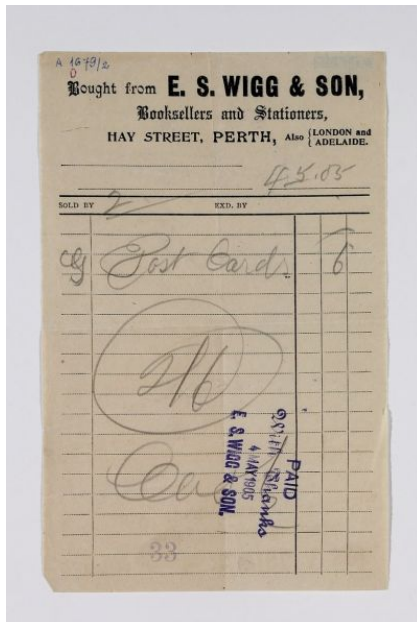 A 1679/2
D
Bought from E. S. WIGG & SON,
Booksellers and Stationers,
HAY STREET, PERTH, Also { LONDON and ADELAIDE.
4.5.05
SOLD BY 2 EXD. BY
Post Cards 6
2/6
PAID
With Thanks
4 MAY 1905
E. S. WIGG & SON.
Cash
33